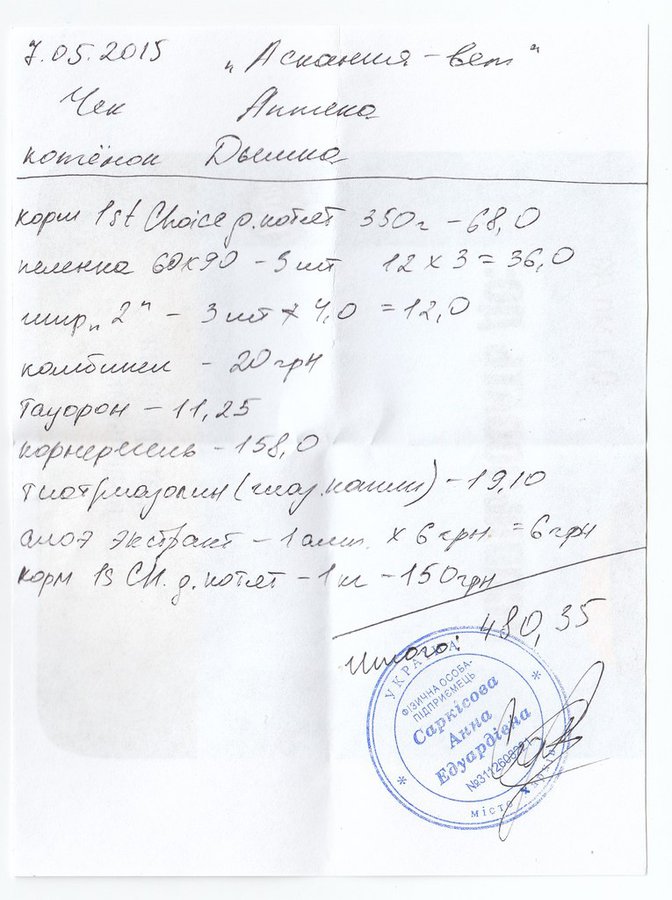 7.05.2015 „Аскания-вет"
Чек Аптека
котёнок Дымка
корм 1st Choice д.котят 350г - 68,0
пеленка 60х90 - 3 шт 12 х 3 = 36,0
шпр „2" - 3 шт х 4,0 = 12,0
комбинил - 20 грн
Тауфон - 11,25
корнерегель - 158,0
тиотриазолин (глаз.капли) - 19,10
алоэ экстракт - 1 амп. х 6 грн. = 6 грн
корм 1s CH. д. котят - 1 кг - 150 грн
Итого: 480,35
УКРАЇНА
ФІЗИЧНА ОСОБА-
ПІДПРИЄМЕЦЬ
Саркісова
Анна
Едуардівна
місто Харків